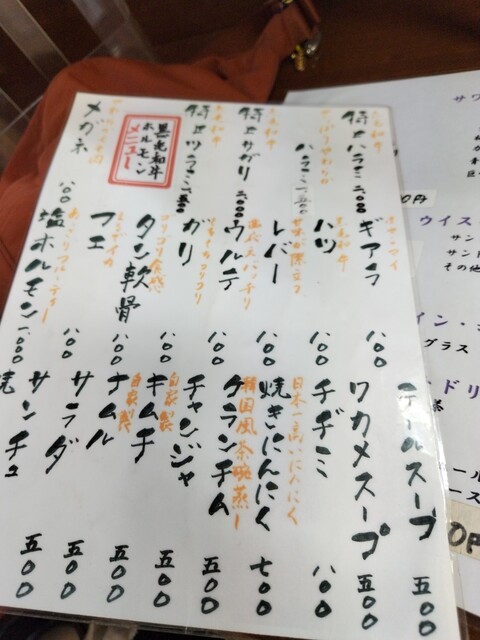 黒毛和牛
ホルモン
メニュー
黒毛和牛
特上ハラミ 二、〇〇〇
さっぱりやわらか
ハラミ 一、五〇〇
黒毛和牛
特上サガリ 二、〇〇〇
黒毛和牛
特上ツラミ 一、五〇〇
メガネ 八〇〇
ギアラ 八〇〇
黒毛和牛
ハツ 八〇〇
レバー 八〇〇
ウルテ 八〇〇
コリコリ
ガリ 八〇〇
コリコリ食感
タン軟骨 八〇〇
フエ 八〇〇
塩ホルモン 一、〇〇〇
テールスープ 五〇〇
ワカメスープ 五〇〇
チヂミ 八〇〇
日本一高いにんにく
焼きにんにく 七〇〇
韓国風茶碗蒸し
ケランチム 五〇〇
チャンジャ 五〇〇
自家製
キムチ 五〇〇
自家製
ナムル 五〇〇
サラダ 五〇〇
サンチュ
焼
サワ
0円
ウイス
サン
サント
その他
イン・
グラス
ドリ
茶
ール
ース
0円